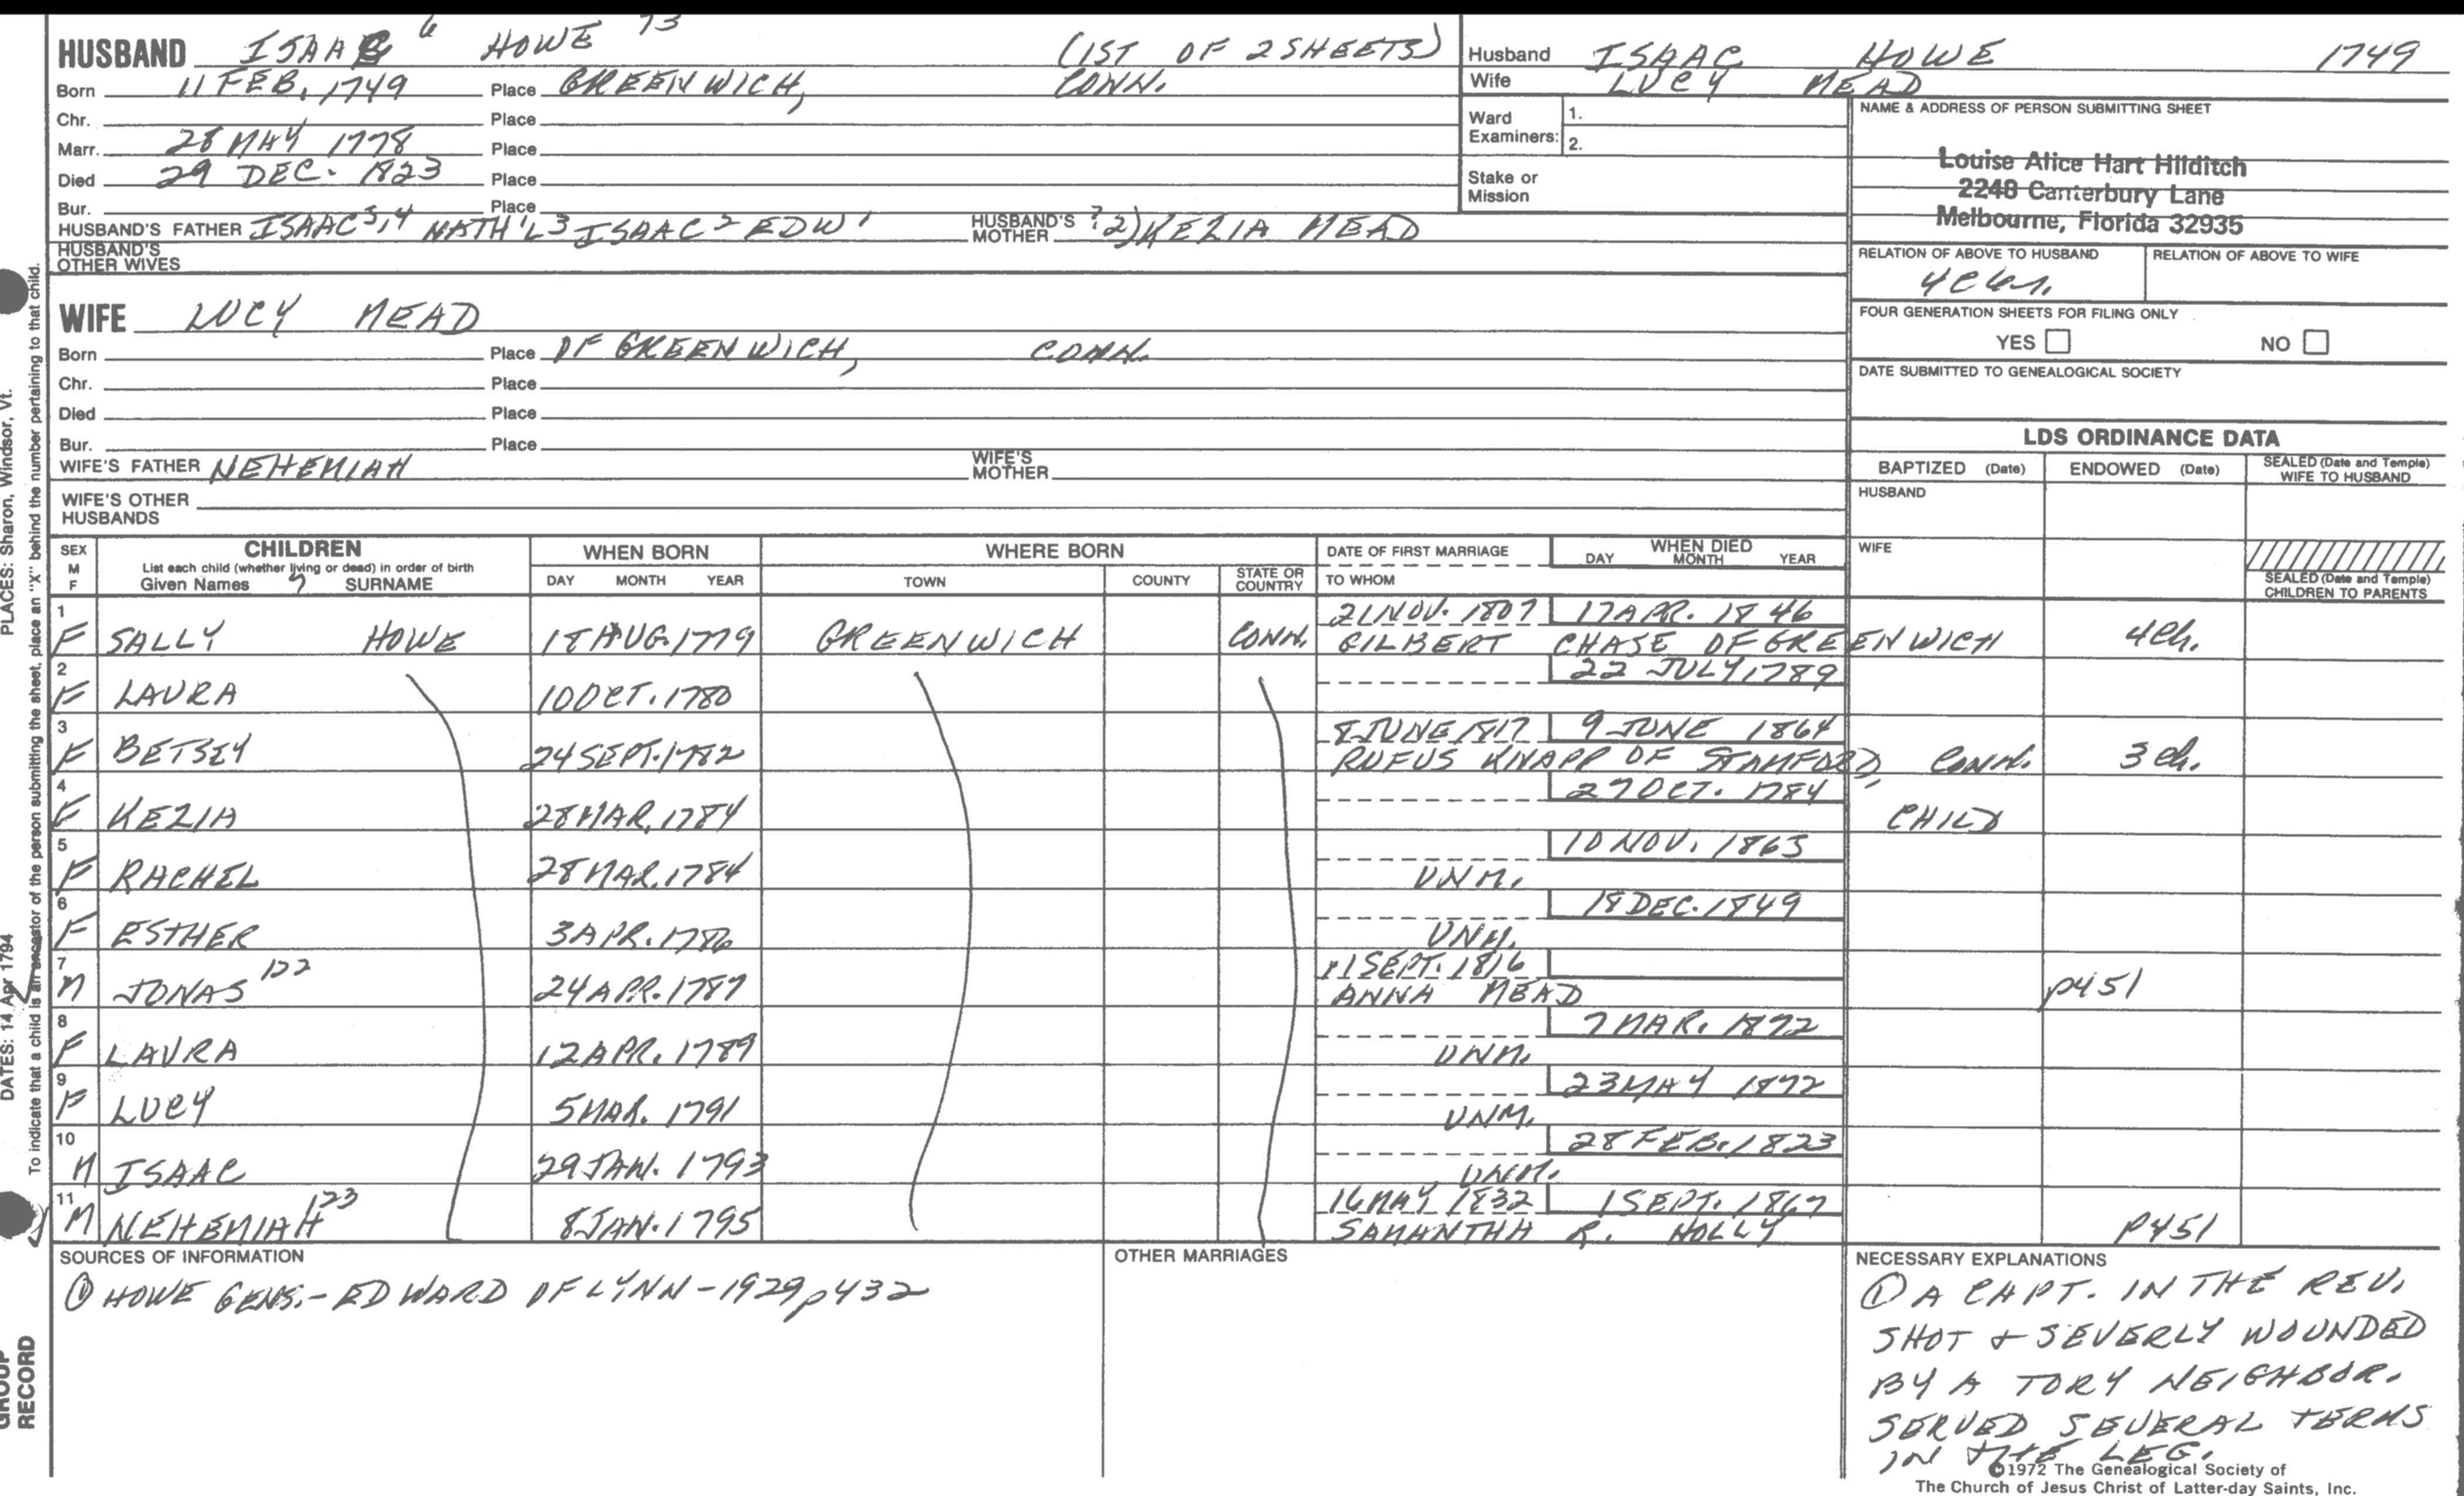 HUSBAND ISAAC 6 HOWE 73 (1ST OF 2 SHEETS)
Born 11 FEB. 1749 Place GREENWICH, CONN.
Chr. Place
Marr. 28 MAY 1778 Place
Died 29 DEC. 1823 Place
Bur. Place
HUSBAND'S FATHER ISAAC 5,4 NATH'L 3 ISAAC 2 EDW 1 HUSBAND'S MOTHER ?(2) KEZIA MEAD
HUSBAND'S OTHER WIVES
Husband ISAAC HOWE 1749
Wife LUCY MEAD
Ward Examiners: 1.
2.
Stake or Mission
NAME & ADDRESS OF PERSON SUBMITTING SHEET
Louise Alice Hart Hilditch
2248 Canterbury Lane
Melbourne, Florida 32935
RELATION OF ABOVE TO HUSBAND RELATION OF ABOVE TO WIFE
FOUR GENERATION SHEETS FOR FILING ONLY
YES NO
DATE SUBMITTED TO GENEALOGICAL SOCIETY
WIFE LUCY MEAD
Born Place OF GREENWICH, CONN.
Chr. Place
Died Place
Bur. Place
WIFE'S FATHER NEHEMIAH WIFE'S MOTHER
WIFE'S OTHER HUSBANDS
LDS ORDINANCE DATA
BAPTIZED (Date) ENDOWED (Date) SEALED (Date and Temple) WIFE TO HUSBAND
HUSBAND
WIFE
SEALED (Date and Temple) CHILDREN TO PARENTS
SEX M F CHILDREN WHEN BORN WHERE BORN DATE OF FIRST MARRIAGE WHEN DIED
List each child (whether living or dead) in order of birth
Given Names SURNAME DAY MONTH YEAR TOWN COUNTY STATE OR COUNTRY TO WHOM DAY MONTH YEAR
1 21 NOV. 1807 17 APR. 1846
F SALLY HOWE 18 AUG. 1779 GREENWICH CONN. GILBERT CHASE OF GREENWICH 4 ch.
2 22 JULY 1789
F LAURA 10 OCT. 1780
3 8 JUNE 1817 9 JUNE 1864
F BETSEY 24 SEPT. 1782 RUFUS KNAPP OF STAMFORD, CONN. 3 ch.
4 27 OCT. 1784
F KEZIA 28 MAR. 1784 CHILD
5 10 NOV. 1863
F RACHEL 28 MAR. 1784 UNM.
6 18 DEC. 1849
F ESTHER 3 APR. 1786 UNM.
7 SEPT. 1816
M JONAS 122 24 APR. 1787 ANNA MEAD p451
8 7 MAR. 1872
F LAURA 12 APR. 1789 UNM.
9 23 MAY 1872
F LUCY 5 MAR. 1791 UNM.
10 28 FEB. 1823
M ISAAC 29 JAN. 1793 UNM.
11 16 MAY 1832 1 SEPT. 1867
M NEHEMIAH 123 8 JAN. 1795 SAMANTHA R. HOLLY p451
SOURCES OF INFORMATION
① HOWE GENS. - EDWARD OF LYNN - 1929 p432
OTHER MARRIAGES
NECESSARY EXPLANATIONS
① A CAPT. IN THE REV.
SHOT + SEVERLY WOUNDED
BY A TORY NEIGHBOR.
SERVED SEVERAL TERMS
IN THE LEG.
©1972 The Genealogical Society of
The Church of Jesus Christ of Latter-day Saints, Inc.
PLACES: Sharon, Windsor, Vt.
DATES: 14 Apr 1794
To indicate that a child is an ancestor of the person submitting the sheet, place an "X" behind the number pertaining to that child.
GROUP
RECORD